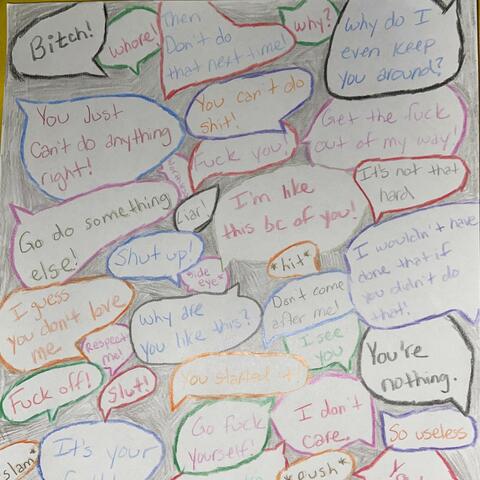 Bitch!
whore!
Then
Don't do
that next time!
why?
Why do I
even keep
you around?
You Just
Can't do anything
right!
You can't do
shit!
Fuck you!
Get the fuck
out of my way!
It's not that
hard
Go do something
else!
Liar!
I'm like
this bc of you!
Shut up!
*side
eye*
*hit*
I wouldn't have
done that if
you didn't do
that!
I guess
you don't love
me
Why are
you like this?
Don't come
after me!
Respect
me!
I see
you
You're
nothing.
Fuck off!
Slut!
You started it!
Go fuck
yourself!
I don't
care.
So useless
slam*
It's your
*push*